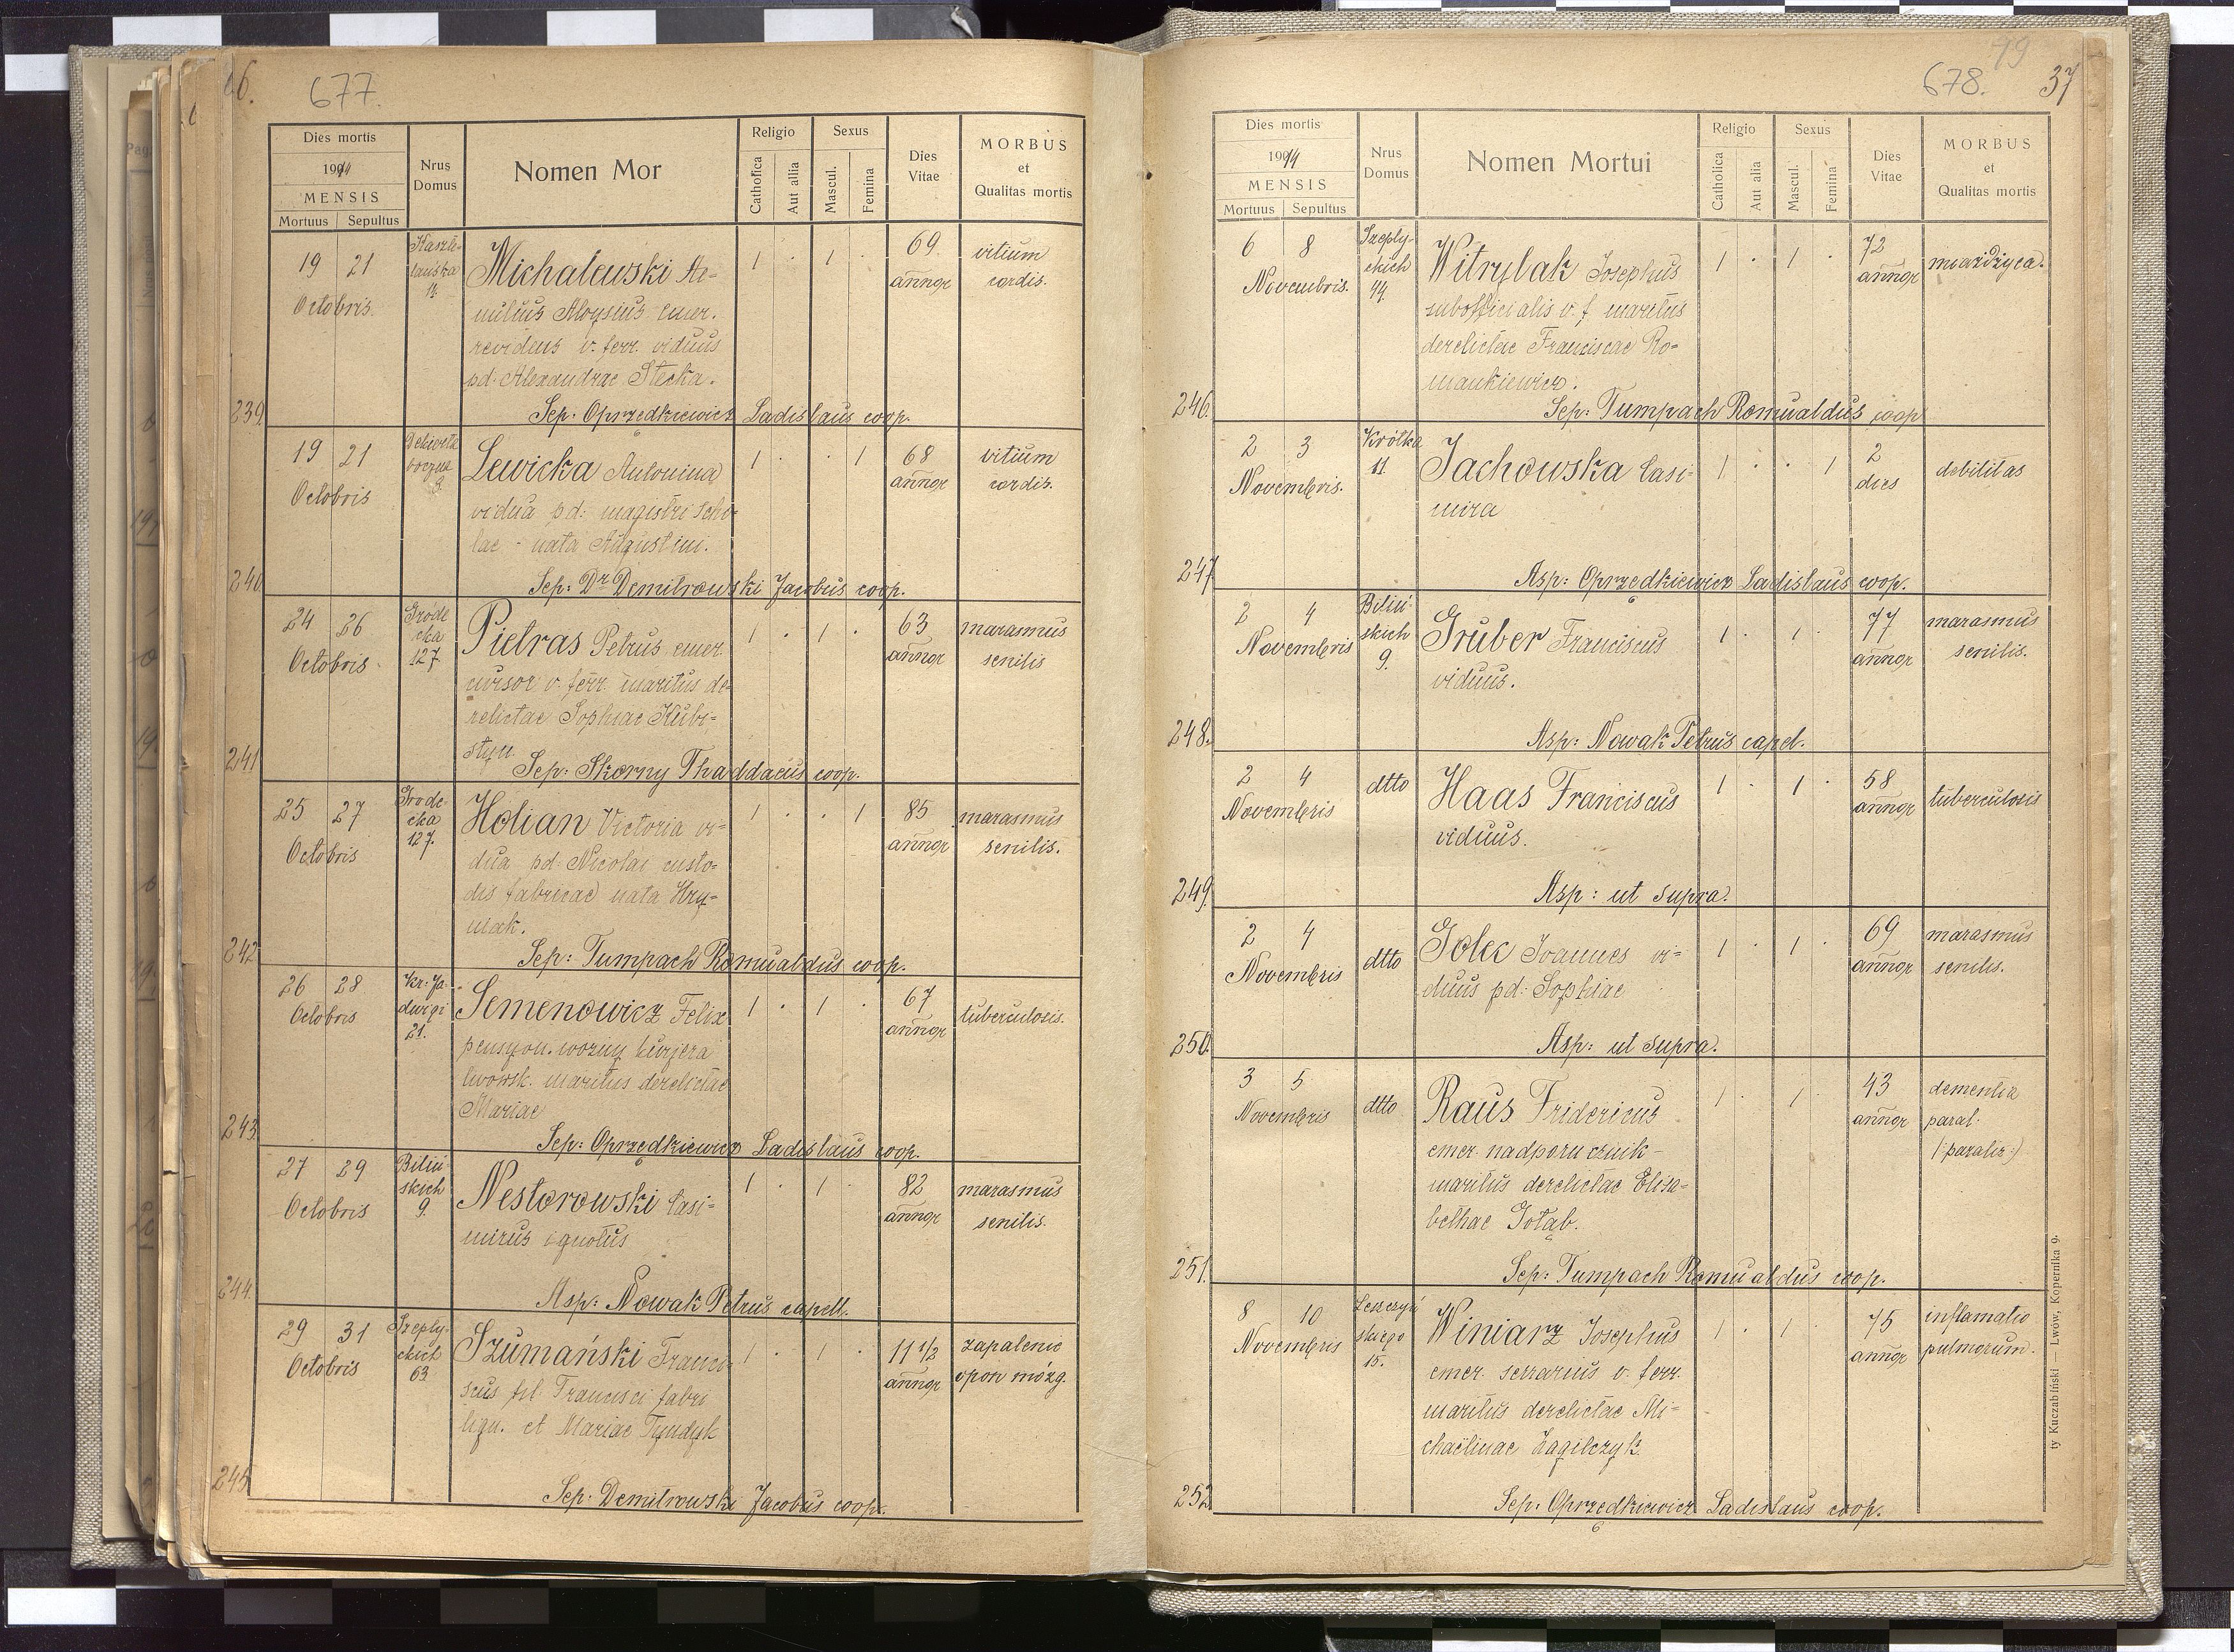 677.
Dies mortis
1944
MENSIS
Mortuus Sepultus
Nrus Domus
Nomen Mor
Religio
Catholica
Aut allia
Sexus
Mascul.
Femina
Dies Vitae
MORBUS
et
Qualitas mortis
239.
19 21
Octobris.
14.
1 . 1 .
69 annor
vitium
cordis.
Michalewski Ae-
milius Aloysius emer.
revidens v. ferr. viduus
pd. Alexandrae Stecka.
Sep: Oprzędkiewicz Ladislaus coop.
240.
19 21
Octobris
boczna
1 . . 1
68 annor
vitium
cordis.
Lewicka Antonina
vidua pd: magistri scho-
lae - nata Augustini.
Sep: Dr Demitrowski Jacobus coop.
241
24 26
Octobris.
Grode
cka
127.
1 . 1 .
63 annor
marasmus
senilis
Pietras Petrus emer.
cursor v. ferr. maritus de-
relictae Sophiae Kubi-
styn.
Sep: Skorny Thaddaeus coop.
242
25 27
Octobris
Grode-
cka
127.
1 . . 1
85 annor
marasmus
senilis.
Holian Victoria vi-
dua pd. Nicolai custo-
dis fabricae nata Hry-
niak.
Sep: Tumpach Romualdus coop.
243.
26 28
Octobris
Kr: Ja-
dwigi
21.
1 . 1 .
67 annor
tuberculosis.
Semenowicz Felix
pensyon. woźny kurjera
lwowsk. maritus derelictae
Mariae
Sep: Oprzędkiewicz Ladislaus coop.
244.
27 29
Octobris
Biliń-
skich
9.
1 . 1 .
82 annor
marasmus
senilis.
Nestorowski Casi-
mirus ignotus
Asp: Nowak Petrus capell.
245
29 31
Octobris
Szepty-
ckich
63.
1 . 1 .
11 1/2 annor
zapalenie
opon mózg.
Szumański Franci-
scus fil. Francisci fabri
lign. et Mariae Tyndyk
Sep: Demitrowski Jacobus coop.
79
678. 37
Dies mortis
1944
MENSIS
Mortuus Sepultus
Nrus Domus
Nomen Mortui
Religio
Catholica
Aut alia
Sexus
Mascul.
Femina
Dies Vitae
MORBUS
et
Qualitas mortis
246.
6 8
Novembris.
Szepty-
ckich
44.
1 . 1 .
72 annor
miażdżyca.
Witrylak Josephus
subofficialis v. f. maritus
derelictae Franciscae Ro-
mankiewicz.
Sep: Tumpach Romualdus coop
247
2 3
Novembris.
Krótka
11.
1 . . 1
2 dies
debilitas
Jachowska Casi-
mira
Asp: Oprzędkiewicz Ladislaus coop.
248.
2 4
Novembris
Biliń-
skich
9.
1 . 1 .
77 annor
marasmus
senilis.
Gruber Franciscus
viduus.
Asp: Nowak Petrus capel.
249.
2 4
Novembris
dtto
1 . 1 .
58 annor
tuberculosis
Haas Franciscus
viduus.
Asp: ut supra.
250.
2 4
Novembris
dtto
1 . 1 .
69 annor
marasmus
senilis.
Golec Joannes vi-
duus pd: Sophiae
Asp: ut supra.
251.
3 5
Novembris
dtto
1 . 1 .
43 annor
dementia
paral.
(:paraliz:)
Raus Fridericus
emer. nadporucznik -
maritus derelictae Elisa-
bethae Gołąb.
Sep: Tumpach Romualdus coop.
252
8 10
Novembris
Leszczyń
skiego
15.
1 . 1 .
75 annor
inflamatio
pulmorum.
Winiarz Josephus
emer. serrarius v. ferr.
maritus derelictae Mi-
chaëlinae Zagilczyk.
Sep: Oprzędkiewicz Ladislaus coop.
ty Kuczabiński — Lwów, Kopernika 9.